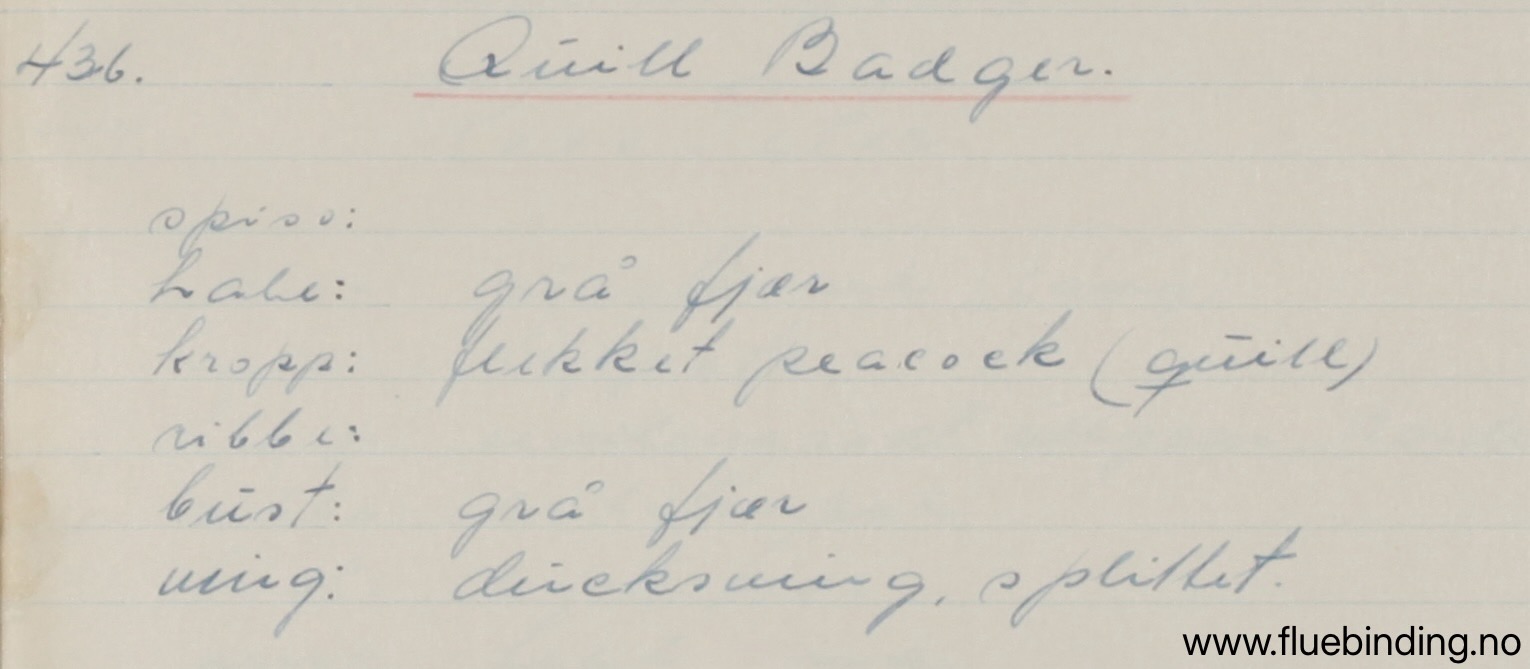 436. Quill Badger.
spiss:
hale: grå fjær
kropp: flekket peacock (quill)
ribbe:
bust: grå fjær
ving: duckswing, splittet.
www.fluebinding.no